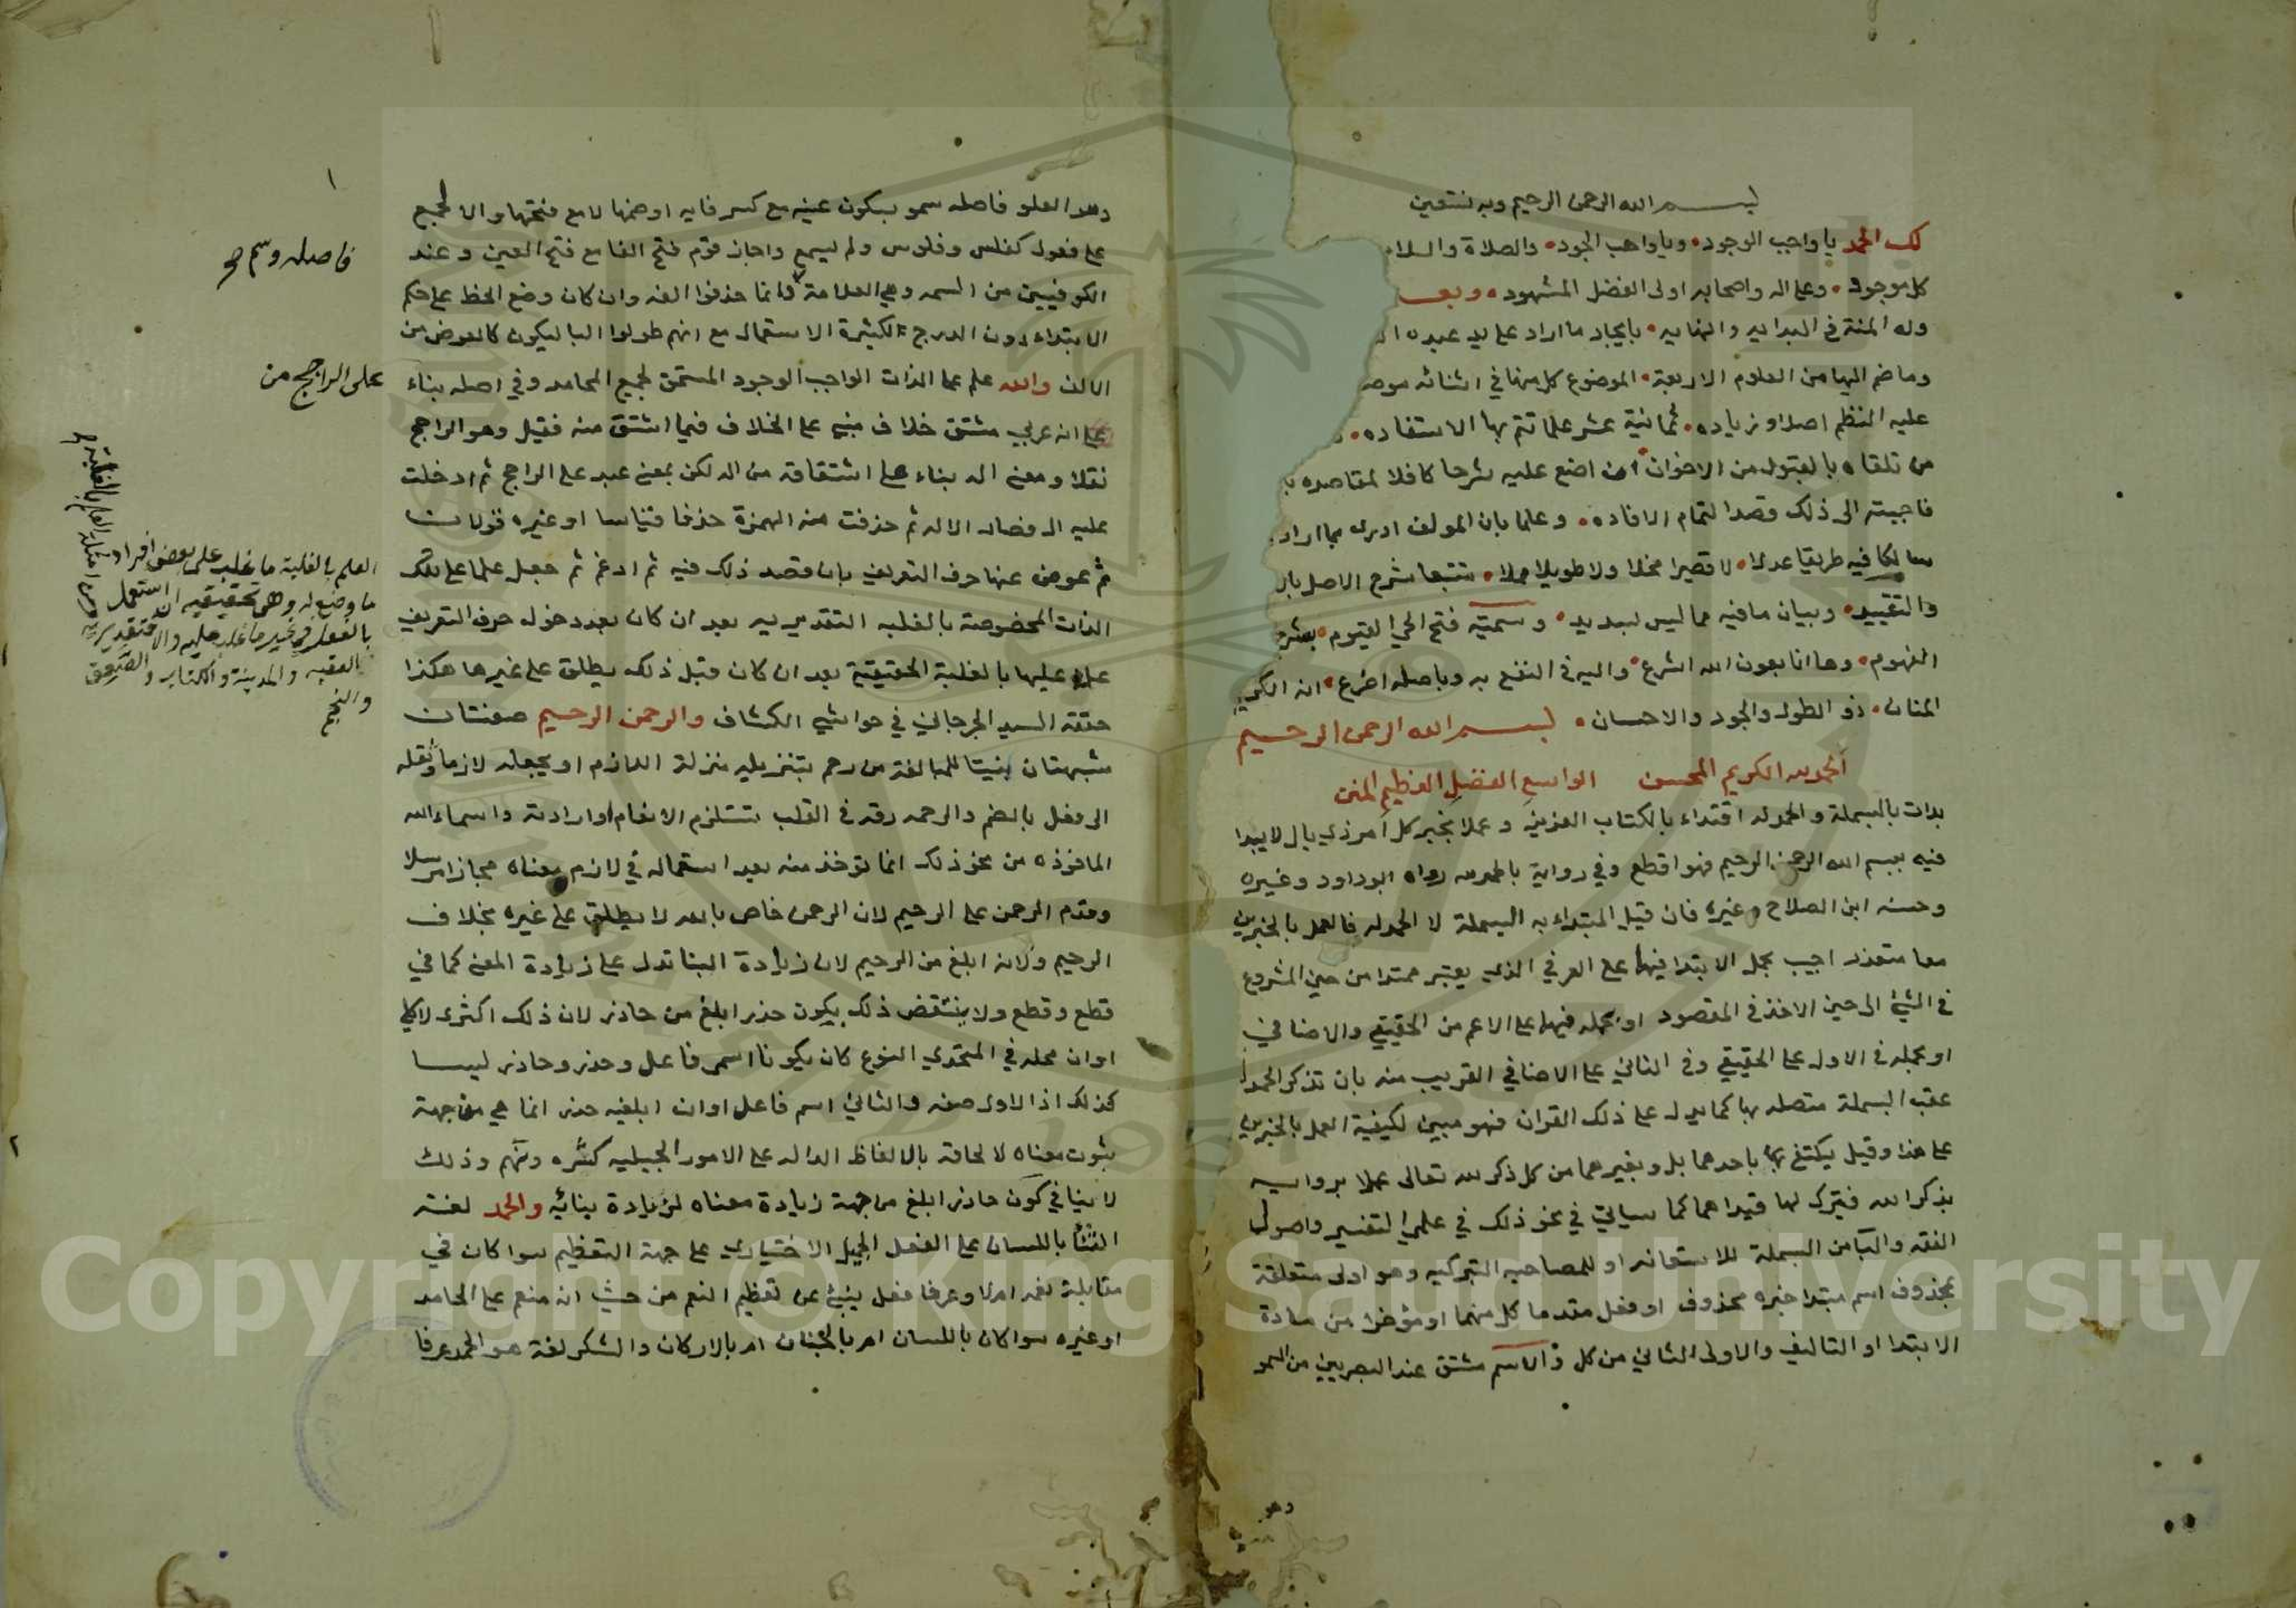 بسم الله الرحمن الرحيم وبه نستعين
لك الحمد يا واجب الوجود • ويا واهب الجود • والصلاة والسلا
كل موجود • وعلى اله واصحابه اولى الفضل المشهود • وبعـ
وله المنة في البدايه والنهايه • بايجاد ما اراد على يد عبده ا
وما ضم اليها من العلوم الاربعة • الموضوع كل منها في اثنائه
عليه النظم اصلا وزياده • ثمانية عشر علما تتم بها الاستفاده •
من تلقاه بالقبول من الاخوان ان اضع عليه شرحا كافلا لمقاصده
فاجبته الى ذلك قصدا لتمام الافاده • وعلما بان المولف ادرى بما اراد
سالكا فيه طريقا عدلا • لا قصيرا مخلا ولا طويلا مملا • متتبعا شرح الاصل
والتقييد • وبيان ما فيه مما ليس بسديد • وسميته فتح الحي القيوم • بشرح
الفهوم • وها انا بعون الله اشرع • واليه في النفع به وباصله اضرع • انه الكريم
المنان • ذو الطول والجود والاحسان • بسم الله الرحمن الرحيم
الحمد لله الكريم المحسن الواسع الفضل العظيم المنن
بدات بالبسملة والحمدله اقتداء بالكتاب العزيز وعملا بخبر كل امر ذي بال لا يبدا
فيه ببسم الله الرحمن الرحيم فهو اقطع وفي رواية بالحمد لله رواه ابو داود وغيره
وحسنه ابن الصلاح وغيره فان قيل المبتداء به البسملة لا الحمدله فالعمل بالخبرين
معا متعذر اجيب بحمل الابتدا فيهما على العرفي الذي يعتبر ممتدا من حين الشروع
في الشيئ الى حين الاخذ في المقصود او بحمله فيهما على الاعم من الحقيقي والاضافي
او بحمله في الاول على الحقيقي وفي الثاني على الاضافي القريب منه بان تذكر الحمدله
عقب البسملة متصله بها كما يدل على ذلك القران فهو مبين لكيفية العمل بالخبرين
على هذا وقيل يكتفى باحدهما بل وبغيرهما من كل ذكر لله تعالى عملا بروايـه
بذكر الله فيترك لها قيداهما كما سياتي في نحو ذلك في علمي التفسير واصول
الفقه والبا من البسملة للاستعانه او للمصاحبه التبركيه وهو اولى متعلقة
بمحذوف اسم مبتدا خبره محذوف او فعل مقدما كل منهما او مؤخرا من مادة
الابتدا او التاليف والاولى الثاني من كل والاسم مشتق عند البصريين من السمو
وهو
وهو العلو فاصله سمو بسكون عينه مع كسر فايه او ضمها لا مع فتحها والا لجمع
على فعول كفلس وفلوس ولم يسمع واجاز قوم فتح الفا مع فتح العين وعند
الكوفيين من السمه وهي العلامة وانما حذفوا الفه وان كان وضع الخط على حكم
الابتداء دون الدرج لكثرة الاستعمال مع انهم طولوا البا ليكون كالعوض من
الالف والله علم على الذات الواجب الوجود المستحق لجميع المحامد وفي اصله بناء
على انه عربي مشتق خلاف مبني على الخلاف فيما اشتق منه فقيل وهو الراجح
نقلا ومعنى اله بناء على اشتقاقه من اله لكن بمعنى عبد على الراجح ثم ادخلت
عليه ال فصار الاله ثم حذفت منه الهمزة حذفا قياسا او غيره قولان
ثم عوض عنها حرف التعريف بان قصد ذلك فيه ثم ادغم ثم جعل علما على تلك
الذات المخصوصة بالغلبه التقديريه بعد ان كان بعد دخول حرف التعريف
علما عليها بالغلبة الحقيقية بعد ان كان قبل ذلك يطلق على غيرها هكذا
حققه السيد الجرجاني في حواشي الكشاف والرحمن الرحيم صفتان
مشبهتان بنيتا للمبالغة من رحم بتنزيله منزلة اللازم او بجعله لازما ونقله
الى فعل بالضم والرحمه رقه في القلب تستلزم الانعام او ارادته واسماء الله
الماخوذه من نحو ذلك انما توخذ منه بعد استعماله في لازم معناه مجازا مرسلا
وقدم الرحمن على الرحيم لان الرحمن خاص بالله لا يطلق على غيره بخلاف
الرحيم ولانه ابلغ من الرحيم لان زيادة البنا تدل على زيادة المعنى كما في
قطع وقطع ولا ينتقض ذلك بكون حذر ابلغ من حاذر لان ذلك اكثرى لا كلي
او ان محله في المتحدي النوع كان يكونا اسمى فاعل وحذر وحاذر ليسا
كذلك اذ الاول صفه والثاني اسم فاعل او ان ابلغيه حذر انما هي من جهة
ثبوت معناه لالحاقه بالالفاظ الداله على الامور الجبليه كشره ونهم وذلك
لا ينافي كون حاذر ابلغ من جهة زيادة معناه لزيادة بنائيه والحمد لغة
الثنا باللسان على الفعل الجميل الاختياري على جهة التعظيم سوا كان في
مقابلة نعمه ام لا وعرفا فعل ينبئ عن تعظيم المنعم من حيث انه منعم على الحامد
او غيره سوا كان باللسان ام بالجنان ام بالاركان والشكر لغة هو الحمد عرفا
١
فاصله وسم
على الراجح من
العلم بالغلبة ما غلب على بعض افراد
ما وضع له وهي تحقيقيه ان استعمل
بالفعل في غير ما غلب عليه والا فتقديريه
كالعقبه والمدينة والكتاب والصعق
والنجم
٢
Copyright © King Saud University
1957